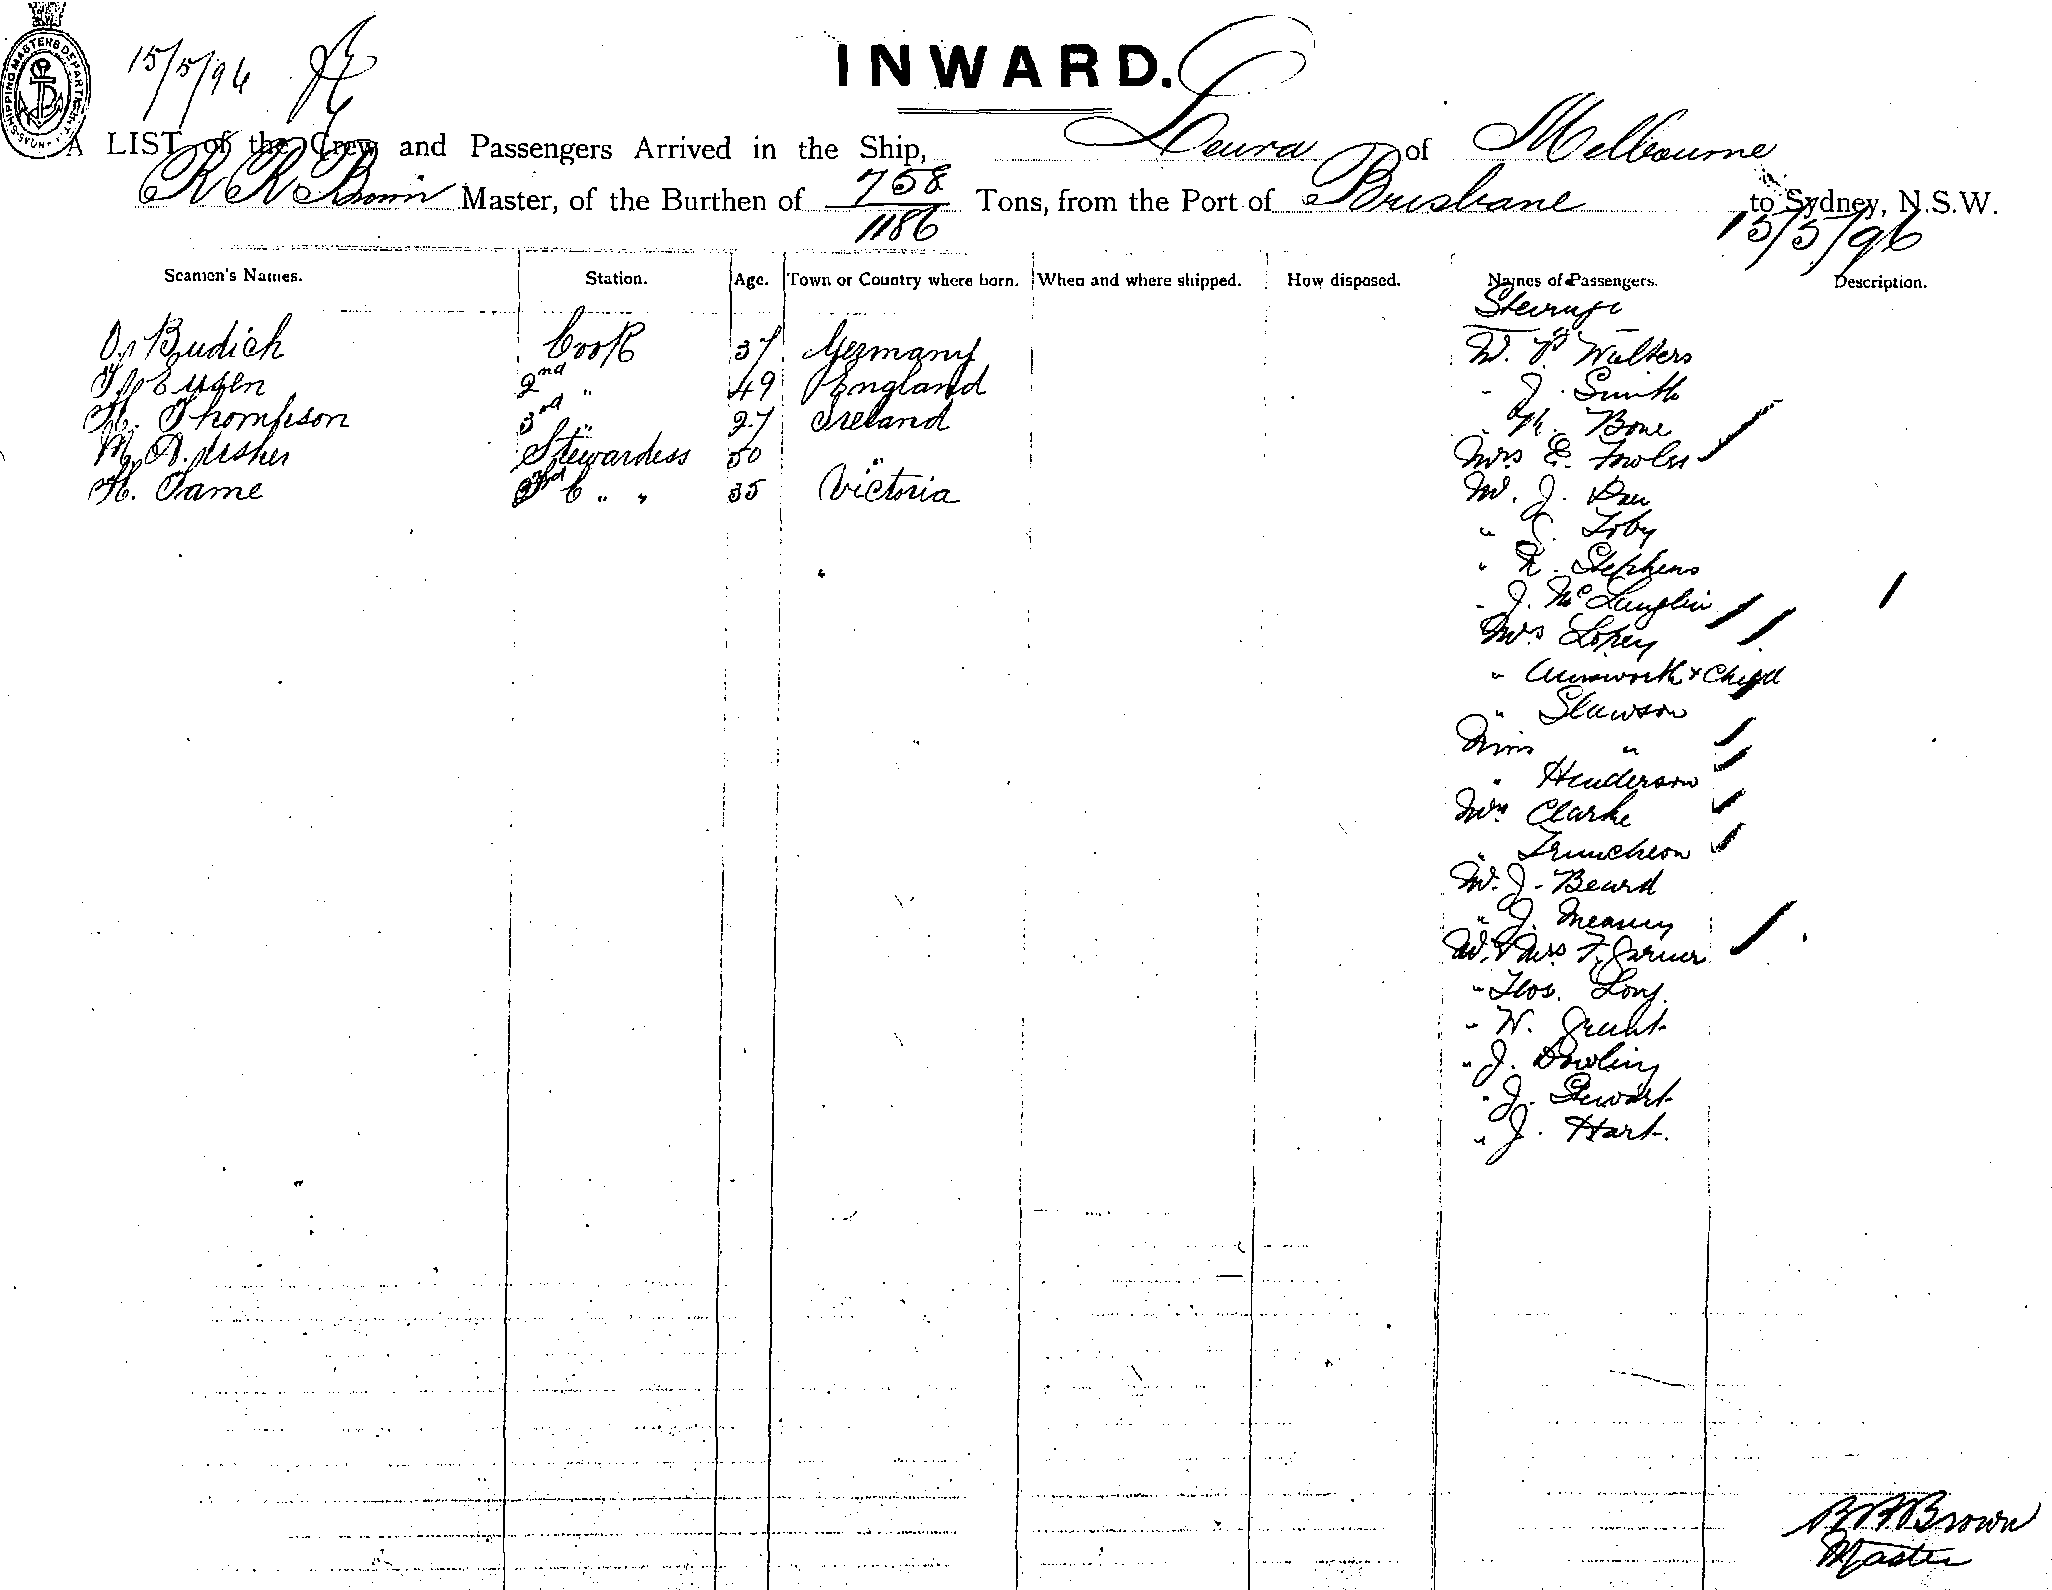 SHIPPING MASTERS DEPARTMENT
15/5/96
INWARD.
A LIST of the Crew and Passengers Arrived in the Ship, Leura of Melbourne
R R Brown Master, of the Burthen of 758 Tons, from the Port of Brisbane to Sydney, N.S.W.
1186 15/5/96
Seamen's Names. Station. Age. Town or Country where born. When and where shipped. How disposed. Names of Passengers. Description.
Steerage
Budich Cook 37 Germany Mr. Walters
2nd " 49 England " J. Smith
H. Thompson 3rd " 27 Ireland " Bone
M. A. Usher Stewardess 50 " Mrs E. Fowler
H. Tame " " 35 Victoria Mr. J.
" Toby
" Stephens
" J. McLauglin
Mrs
" Ainsworth & Child
" Slawson
Miss "
" Henderson
Mrs Clarke
" Truncheon
Mr. J. Beard
" J.
Mr. & Mrs F.
" Thos. Long.
" W. Grant
" J. Dowling
" J. Stewart
" J. Hart.
R R Brown
Master